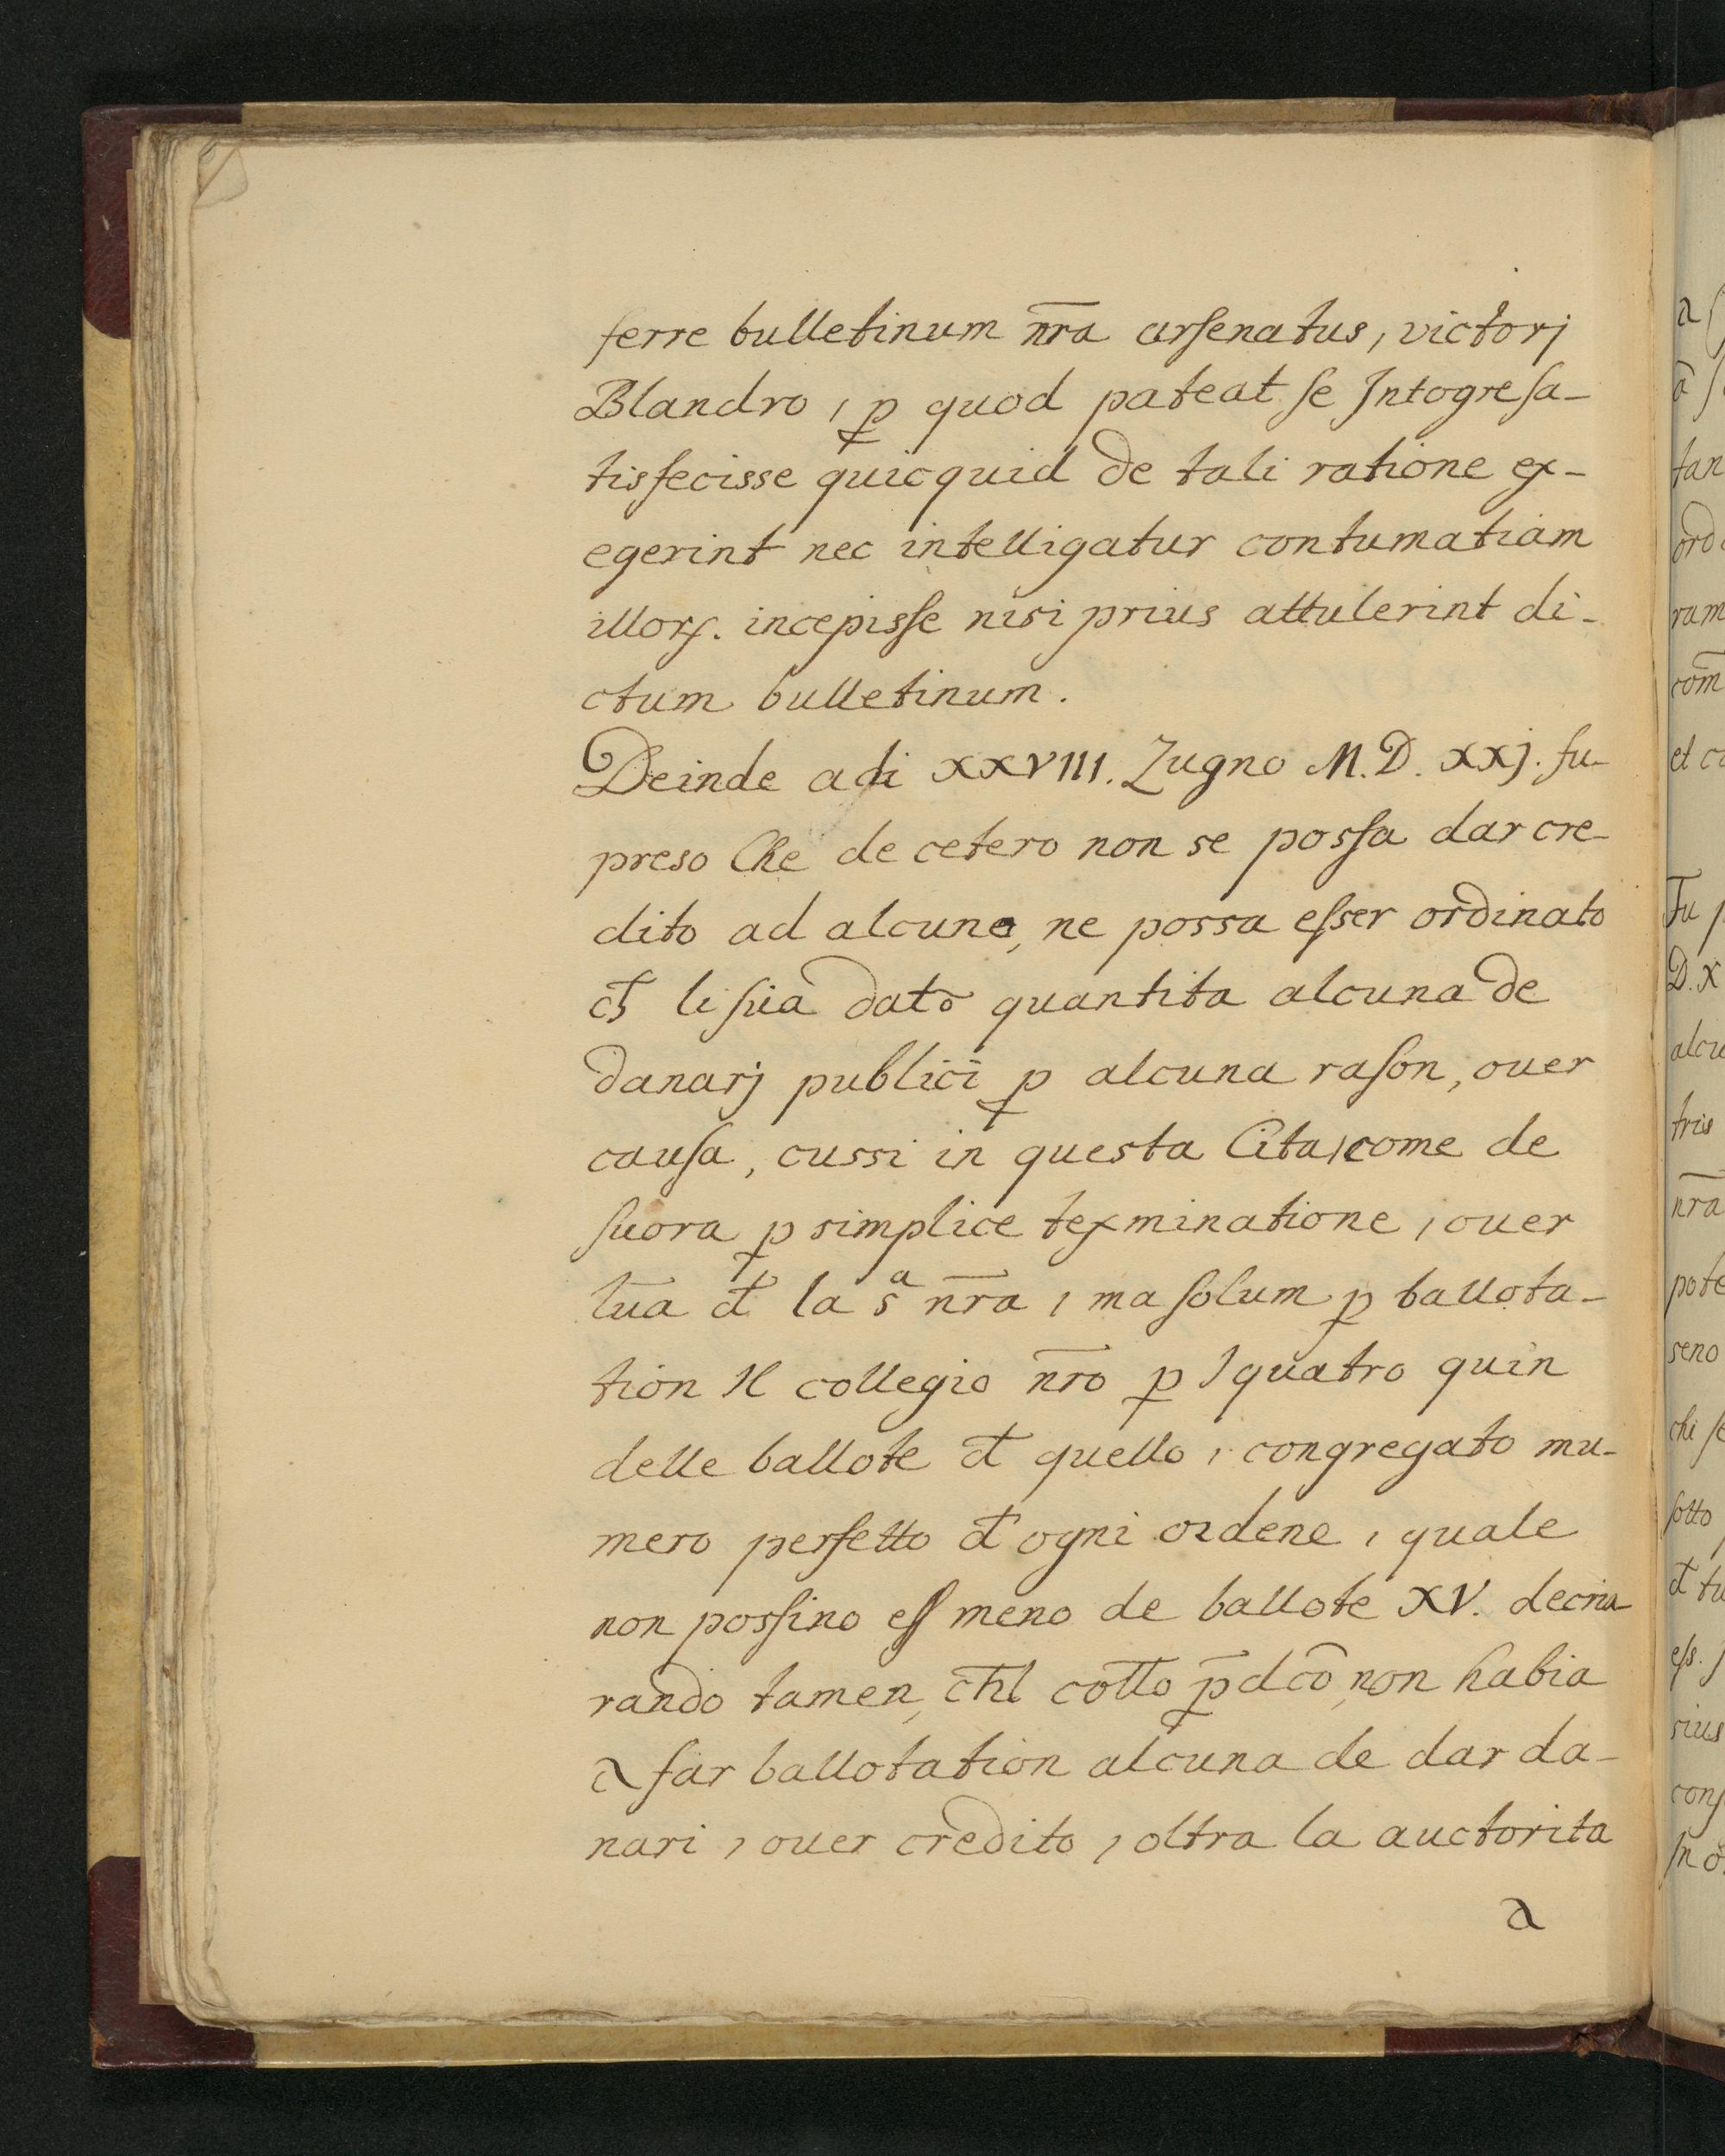 ferre bulletinum nr̄a arſenatus, victorj
Blandro, ꝑ quod pateat ſe Jntogreſa-
tisfecisse quicquid de tali ratione ex-
egerint nec intelligatur contumatiam
illorꝝ. incepisſe nisi prius attulerint di-
ctum bulletinum.
Deinde adi XXVIII. Zugno M.D. XXj. fu-
preso Che de cetero non se posſa dar cre-
dito ad alcuno, ne possa eſser ordinato
li ſia dato quantita alcuna de
danarj publici ꝑ alcuna raſon, ouer
cauſa, cussi in questa Cita, come de
fuora ꝑ simplice terminatione, ouer
la sᵃ nr̄a, ma ſolum ꝑ ballota-
tion collegio nr̄o ꝑ quatro quin
delle ballote d̄ quello, congregato mu-
mero perfetto d̄ ogni ordene, quale
non posſino eſſ meno de ballote XV.
rando tamen, ch̄l cōtto p̄dcō, non habia
a far ballotation alcuna de dar da-
nari, ouer credito, oltra la auctorita
a